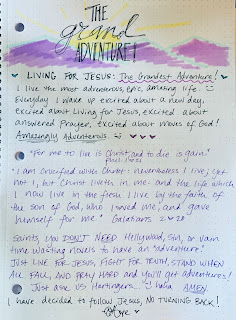 THE
grand
ADVENTURE!
LIVING FOR JESUS: The Grandest Adventure!
I live the most adventurous, epic, amazing life.
Everyday I wake up excited about a new day,
excited about living for Jesus, excited about
answered prayer, excited about moves of God!
Amazingly Adventerous.
"For me to live is Christ, and to die is gain."
"I am crucified with Christ: nevertheless I live; yet
not I, but Christ liveth in me: and the life which
I now live in the flesh I live by the faith of
the son of God, who loved me, and gave
himself for me." Galatians 2:20
Saints, you DON'T NEED Hollywood, sin, or vain
time wasting novels to have an "adventure."
Just LIVE FOR JESUS, FIGHT FOR TRUTH, STAND WHEN
ALL FALL, AND PRAY HARD and you'll get adventures!
Just ask us Hortingers. haha AMEN.
I have decided to follow JESUS, NO TURNING BACK!